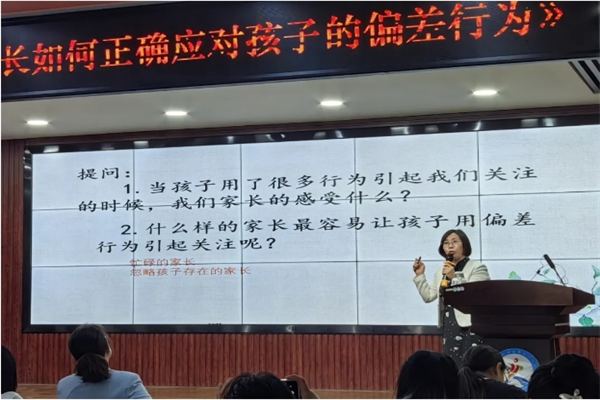 长如何正确应对孩子的偏差行为》
提问：
1. 当孩子用了很多行为引起我们关注
的时候，我们家长的感受什么？
2. 什么样的家长最容易让孩子用偏差
行为引起关注呢？
忙碌的家长
忽略孩子存在的家长